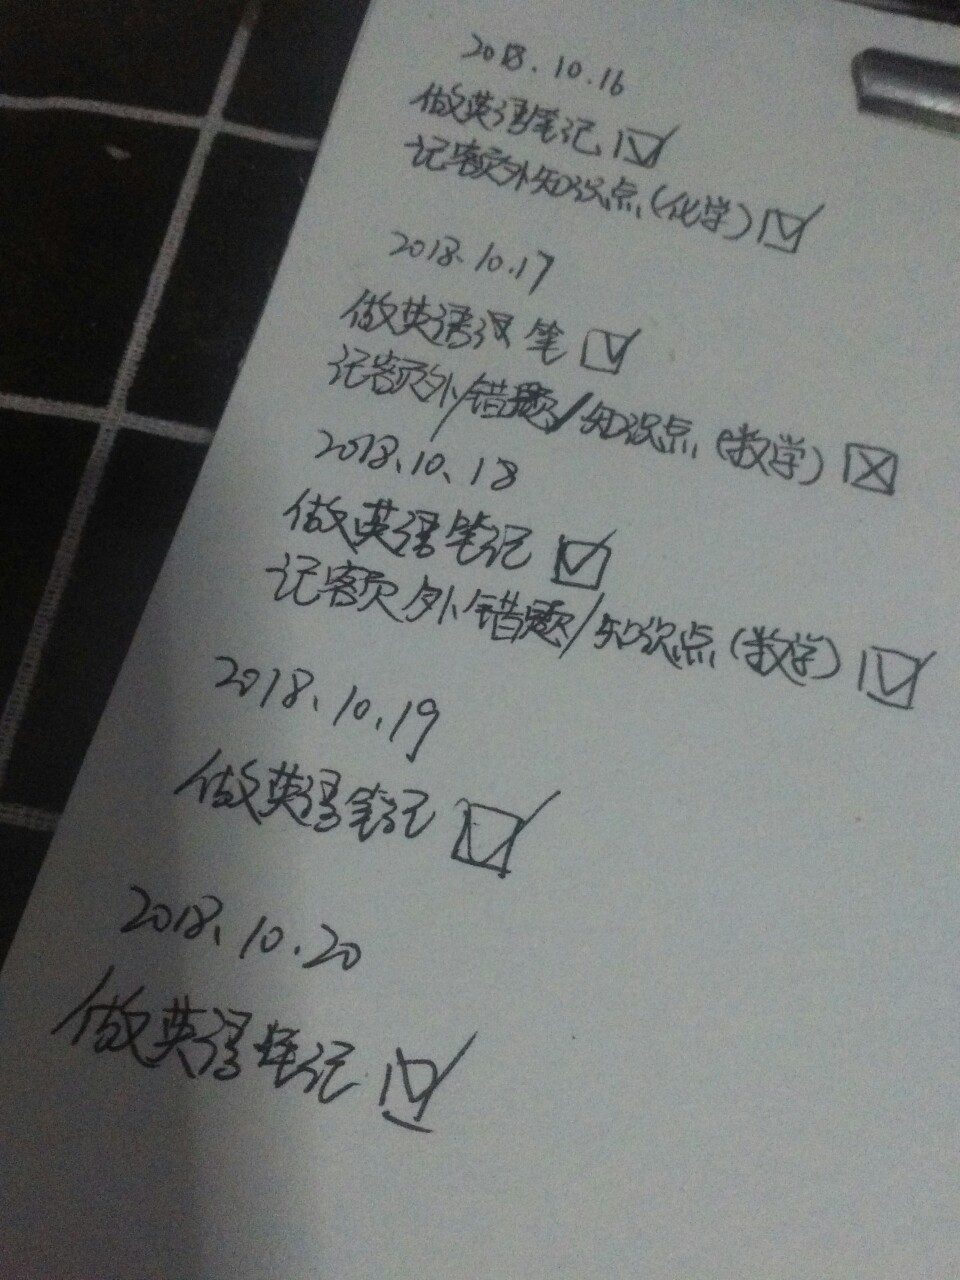 2018.10.16
做英语笔记 ☑
记客页外知识点(化学) ☑
2018.10.17
做英语汉笔 ☑
记客页外/错题/知识点(数学) ☒
2018.10.18
做英语笔记 ☑
记客页外错题/知识点(数学) ☑
2018.10.19
做英语笔记 ☑
2018.10.20
做英语笔记 ☑